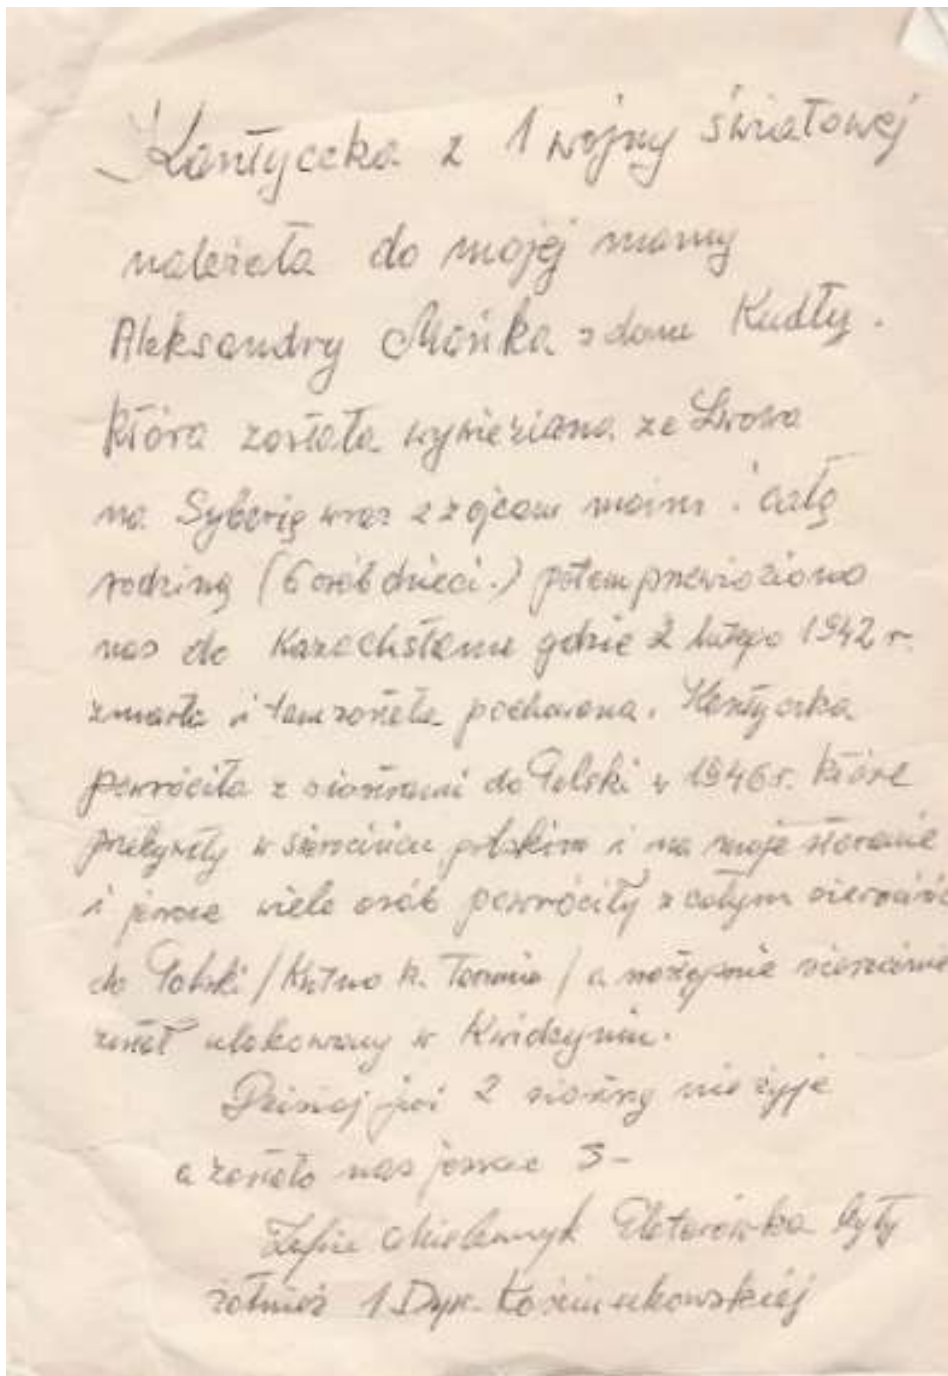 Kantyczka z 1 wojny światowej
należała do mojej mamy
Aleksandry Mońka z domu Kudły.
która została wywieziana ze Lwowa
na Syberię wraz z ojcem moim i całą
rodziną (6 osób dzieci.) potem przewieziono
nas do Kazachstanu gdzie 2 lutego 1942 r.
zmarła i tam została pochowana. Kantyczka
powróciła z siostrami do Polski w 1946 r. które
przebywały w sierocińcu polskim i na moje staranie
i jeszcze wiele osób powróciły z całym
do Polski / Kutno k. / a następnie
został ulokowany w Kwidzyniu.
Dzisiaj już 2 siostry nie żyje
a zostało nas jeszcze 3-
Zofia były
żołnierz 1 Dyw. Kościuszkowskiej